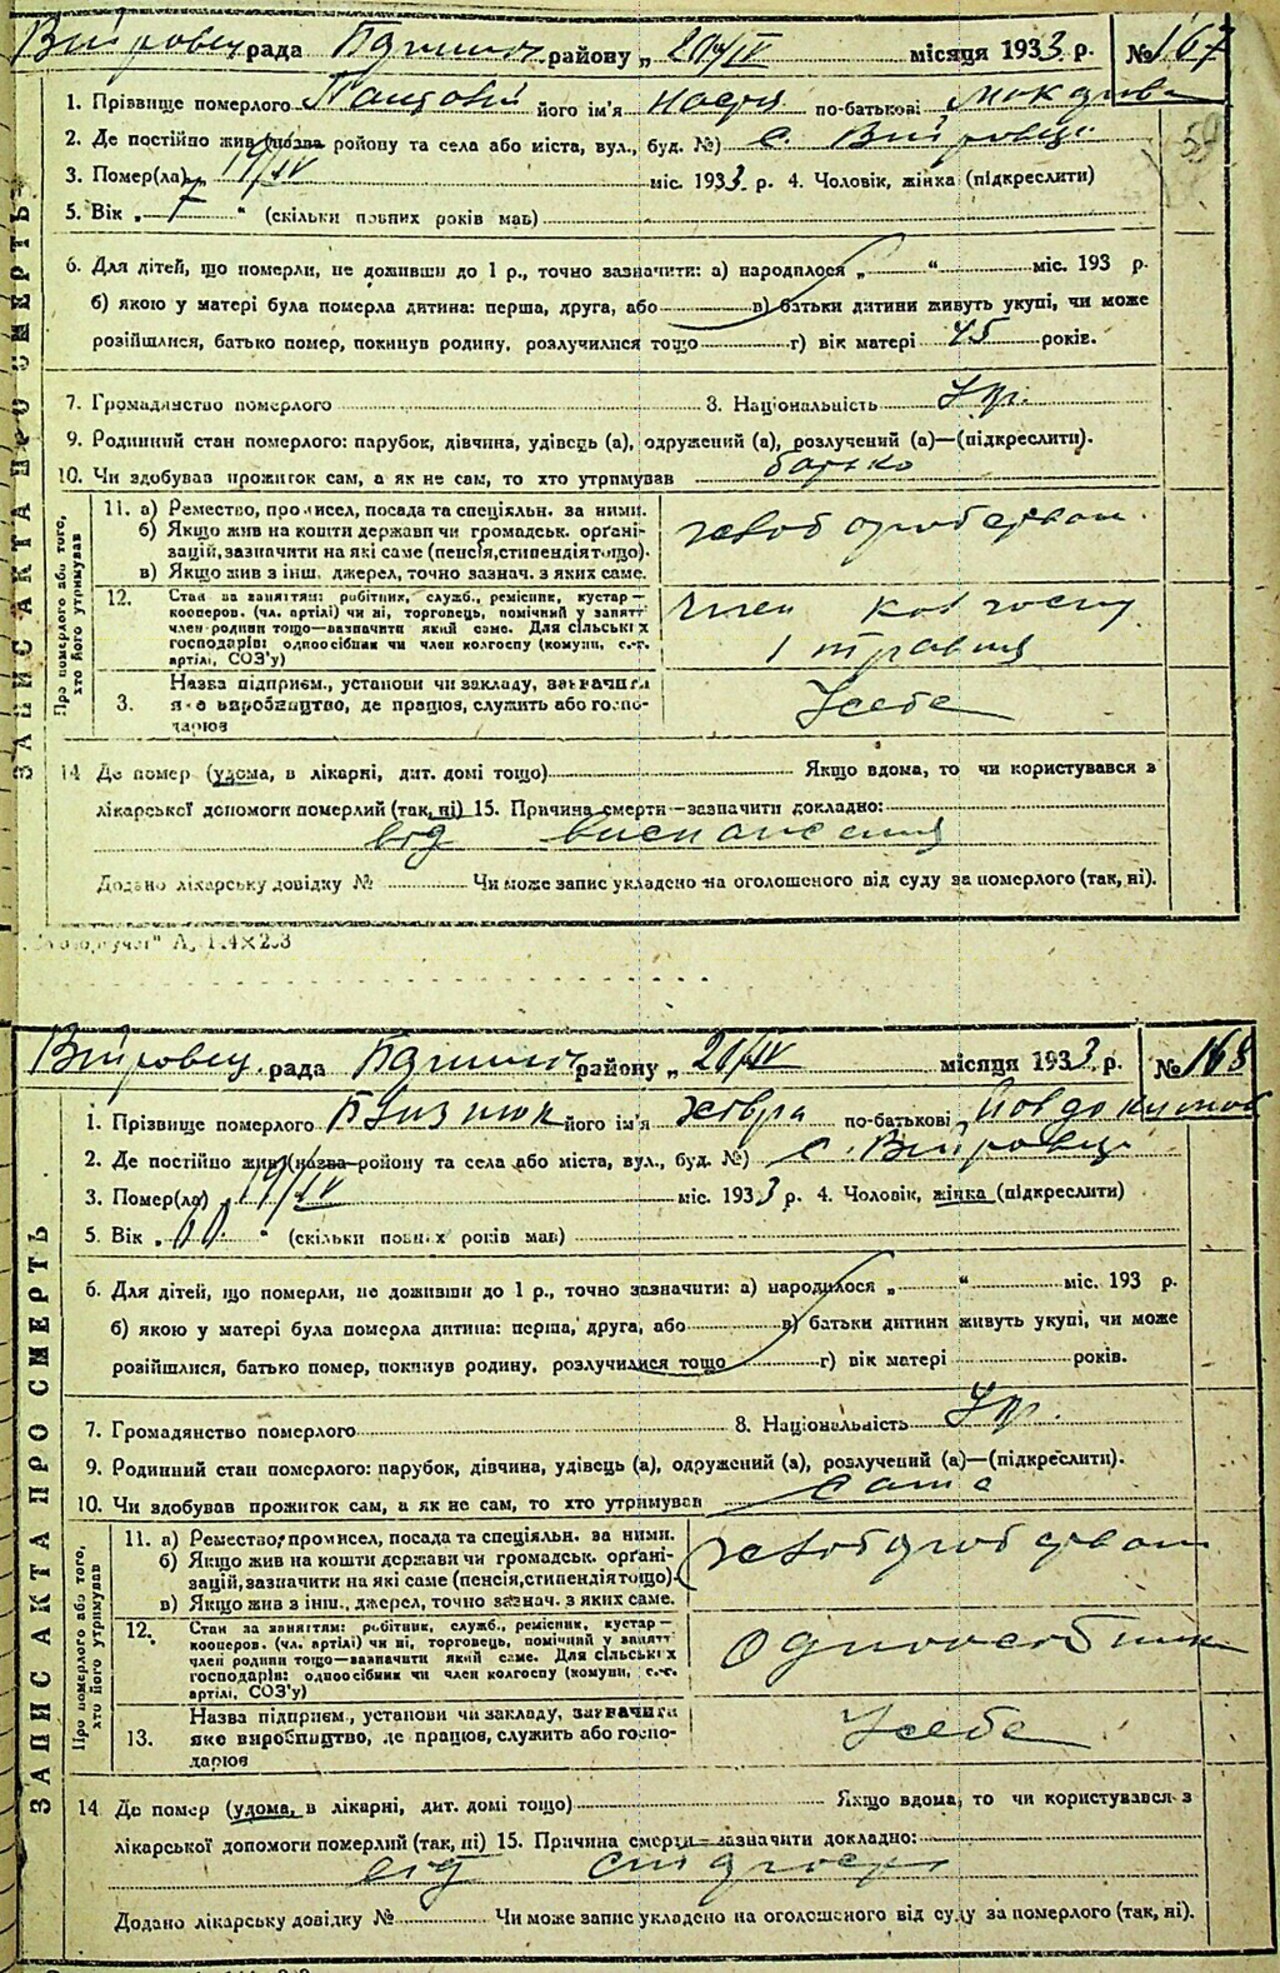 рада району „ 20/IV місяця 1933 р. № 167
1. Прізвище померлого його ім'я Настя по-батькові
2. Де постійно жив (назва району та села або міста, вул., буд. №) с. Війтовці
3. Помер(ла) „ 19/IV міс. 1933 р. 4. Чоловік, жінка (підкреслити)
5. Вік „ 7 “ (скільки повних років мав)
59
6. Для дітей, що померли, не доживши до 1 р., точно зазначити: а) народилося „ “ міс. 193 р.
б) якою у матері була померла дитина: перша, друга, або в) батьки дитини живуть укупі, чи може
розійшлися, батько помер, покинув родину, розлучилися тощо г) вік матері 45 років.
7. Громадянство померлого 8. Національність Укр.
9. Родинний стан померлого: парубок, дівчина, удівець (а), одружений (а), розлучений (а)—(підкреслити).
10. Чи здобував прожиток сам, а як не сам, то хто утримував батько
ЗАПИС АКТА ПРО СМЕРТЬ
Про померлого або того, хто його утримував
11. а) Ремество, промисел, посада та спеціяльн. за ними. хлібороб
б) Якщо жив на кошти держави чи громадськ. орґані-
зацій, зазначити на які саме (пенсія, стипендія тощо).
в) Якщо жив з інш. джерел, точно зазнач. з яких саме.
12. Стан за заняттям: робітник, служб., ремісник, кустар— член колгоспу
кооперов. (чл. артілі) чи ні, торговець, помічний у занятт
член родини тощо—зазначити який саме. Для сільських 1 травня
господарів: одноосібник чи член колгоспу (комуни, с.-г.
артілі, СОЗ'у)
3. Назва підприєм., установи чи закладу, зазначити
яке виробництво, де працює, служить або госпо- У себе
дарює
14 Де помер (удома, в лікарні, дит. домі тощо) Якщо вдома, то чи користувався з
лікарської допомоги померлий (так, ні) 15. Причина смерти—зазначити докладно:
від виснаження
Додано лікарську довідку № Чи може запис укладено на оголошеного від суду за померлого (так, ні).
рада району „ 20/IV місяця 1933 р. № 168
1. Прізвище померлого його ім'я по-батькові
2. Де постійно жив (назва району та села або міста, вул., буд. №) с. Війтовці
3. Помер(ла) „ 19/IV міс. 1933 р. 4. Чоловік, жінка (підкреслити)
5. Вік „ “ (скільки повних років мав)
6. Для дітей, що померли, не доживши до 1 р., точно зазначити: а) народилося „ “ міс. 193 р.
б) якою у матері була померла дитина: перша, друга, або в) батьки дитини живуть укупі, чи може
розійшлися, батько помер, покинув родину, розлучилися тощо г) вік матері років.
7. Громадянство померлого 8. Національність Укр.
9. Родинний стан померлого: парубок, дівчина, удівець (а), одружений (а), розлучений (а)—(підкреслити).
10. Чи здобував прожиток сам, а як не сам, то хто утримував сама
ЗАПИС АКТА ПРО СМЕРТЬ
Про померлого або того, хто його утримував
11. а) Ремество, промисел, посада та спеціяльн. за ними. хлібороб
б) Якщо жив на кошти держави чи громадськ. орґані-
зацій, зазначити на які саме (пенсія, стипендія тощо).
в) Якщо жив з інш. джерел, точно зазнач. з яких саме.
12. Стан за заняттям: робітник, служб., ремісник, кустар—
кооперов. (чл. артілі) чи ні, торговець, помічний у занятт Одноосібник
член родини тощо—зазначити який саме. Для сільських
господарів: одноосібник чи член колгоспу (комуни, с.-г.
артілі, СОЗ'у)
13. Назва підприєм., установи чи закладу, зазначити
яке виробництво, де працює, служить або госпо- У себе
дарює
14 Де помер (удома, в лікарні, дит. домі тощо) Якщо вдома, то чи користувався з
лікарської допомоги померлий (так, ні) 15. Причина смерти—зазначити докладно:
від
Додано лікарську довідку № Чи може запис укладено на оголошеного від суду за померлого (так, ні).